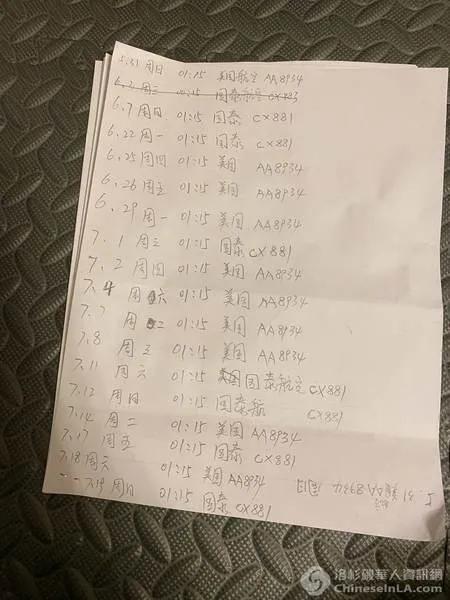 5.31 周日 01:15 美国航空 AA8934
6.3 周三 01:15 国泰航空 CX883
6.7 周日 01:15 国泰 CX881
6.22 周一 01:15 国泰 CX881
6.25 周四 01:15 美国 AA8934
6.26 周五 01:15 美国 AA8934
6.29 周一 01:15 美国 AA8934
7.1 周三 01:15 国泰 CX881
7.2 周四 01:15 美国 AA8934
7.4 周六 01:15 美国 AA8934
7.7 周二 01:15 美国 AA8934
7.8 周三 01:15 美国 AA8934
7.11 周六 01:15 国泰航空 CX881
7.12 周日 01:15 国泰航 CX881
7.14 周二 01:15 美国 AA8934
7.17 周五 01:15 国泰 CX881
7.18 周六 01:15 美国 AA8934
7.19 周日 01:15 国泰 CX881
5.31 AA8934
洛杉磯華人資訊網
ChineseInLA.com